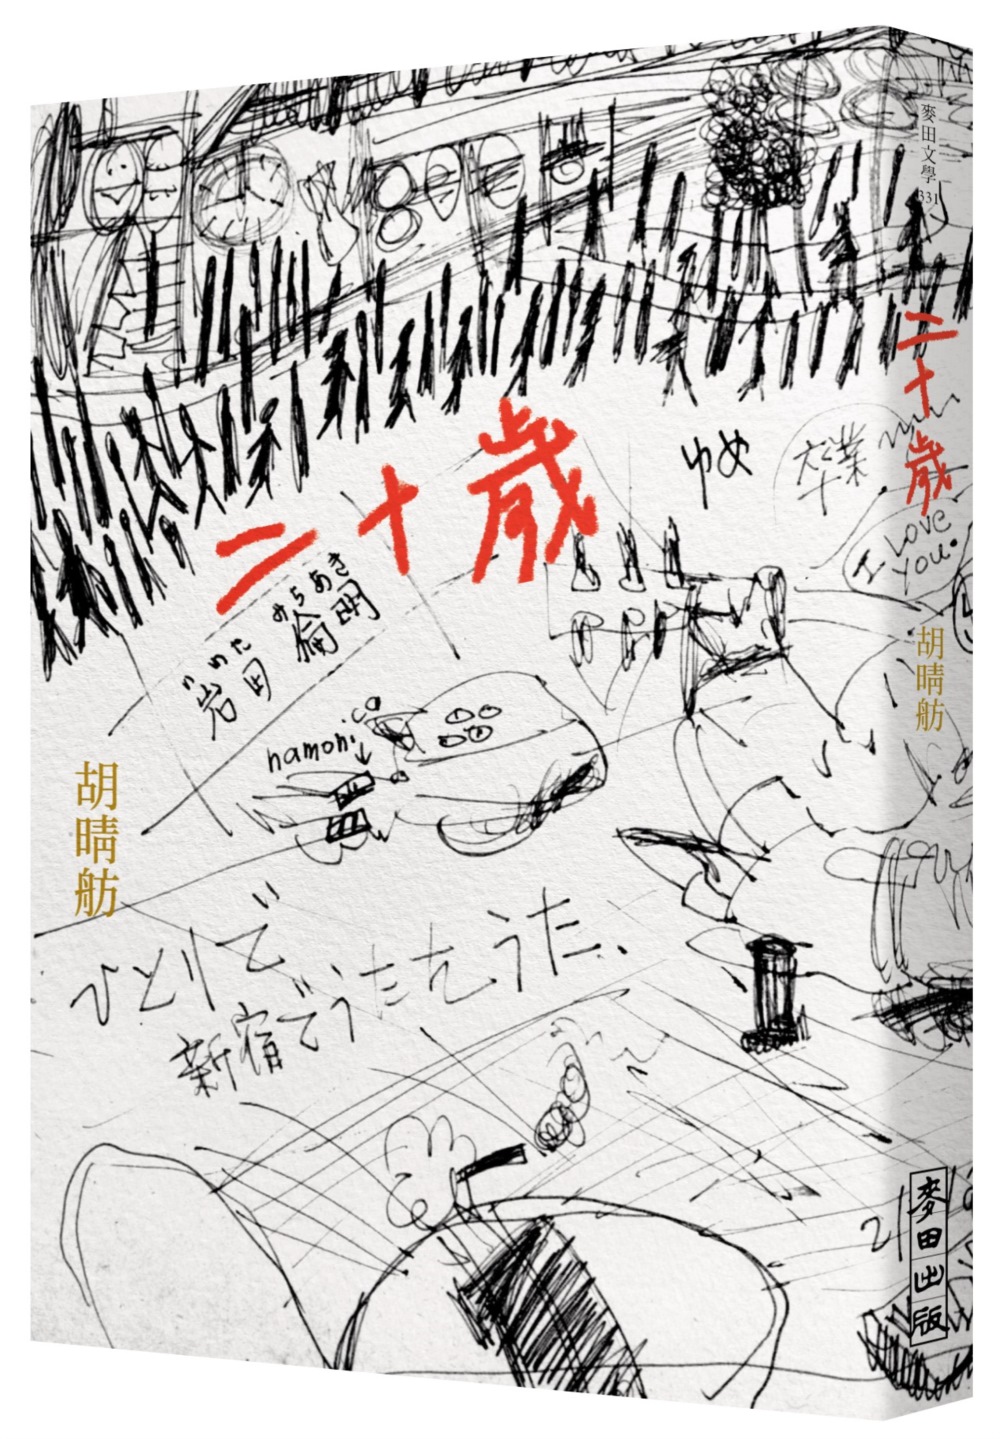 二十歲
ゆめ
卒業
I LOVE
YOU.
いわた みちあき
岩田 倫明
hamonico
胡晴舫
ひとりで
新宿でうたをうた、
麥田文學 331
二十歲
胡晴舫
麥田出版